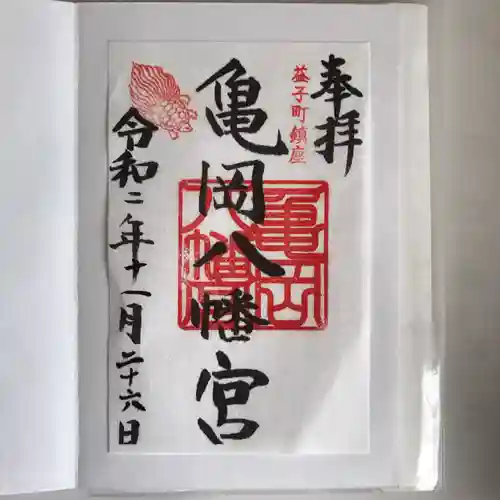 奉拝
益子町鎮座
亀岡八幡宮
亀岡
八幡宮
令和二年十一月二十六日